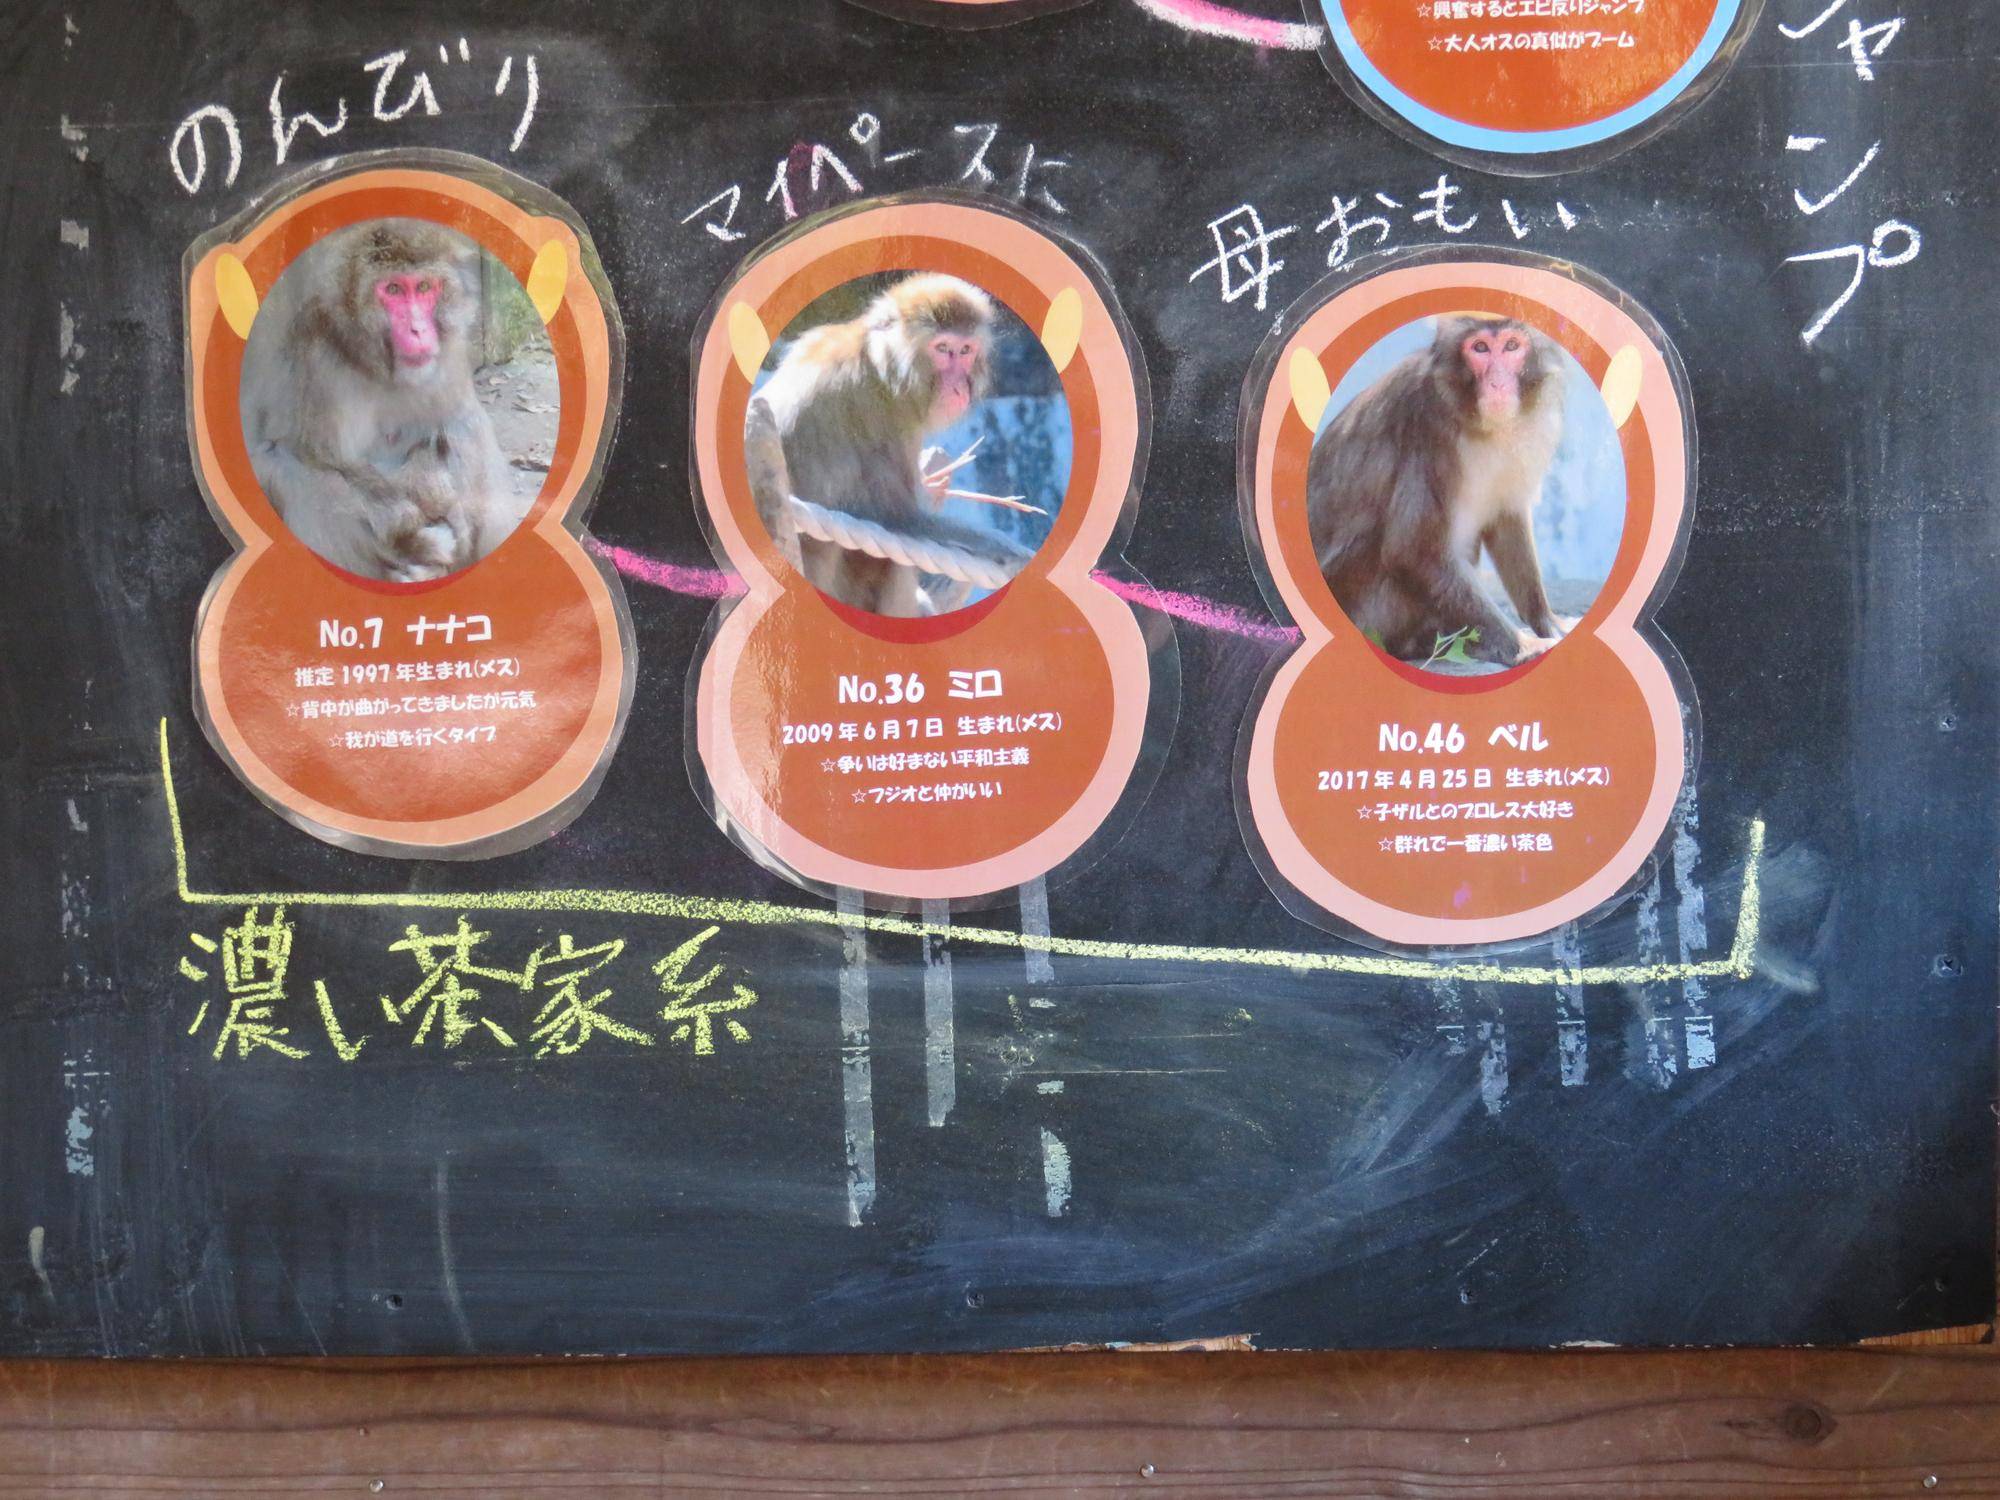 ☆興奮するとエビ反りジャンプ
☆大人オスの真似がブーム
ャンプ
のんびり
マイペースに
母おもい
No.7 ナナコ
推定1997年生まれ(メス)
☆背中が曲がってきましたが元気
☆我が道を行くタイプ
No.36 ミロ
2009年6月7日 生まれ(メス)
☆争いは好まない平和主義
☆フジオと仲がいい
No.46 ベル
2017年4月25日 生まれ(メス)
☆子ザルとのプロレス大好き
☆群れで一番濃い茶色
濃い茶家系